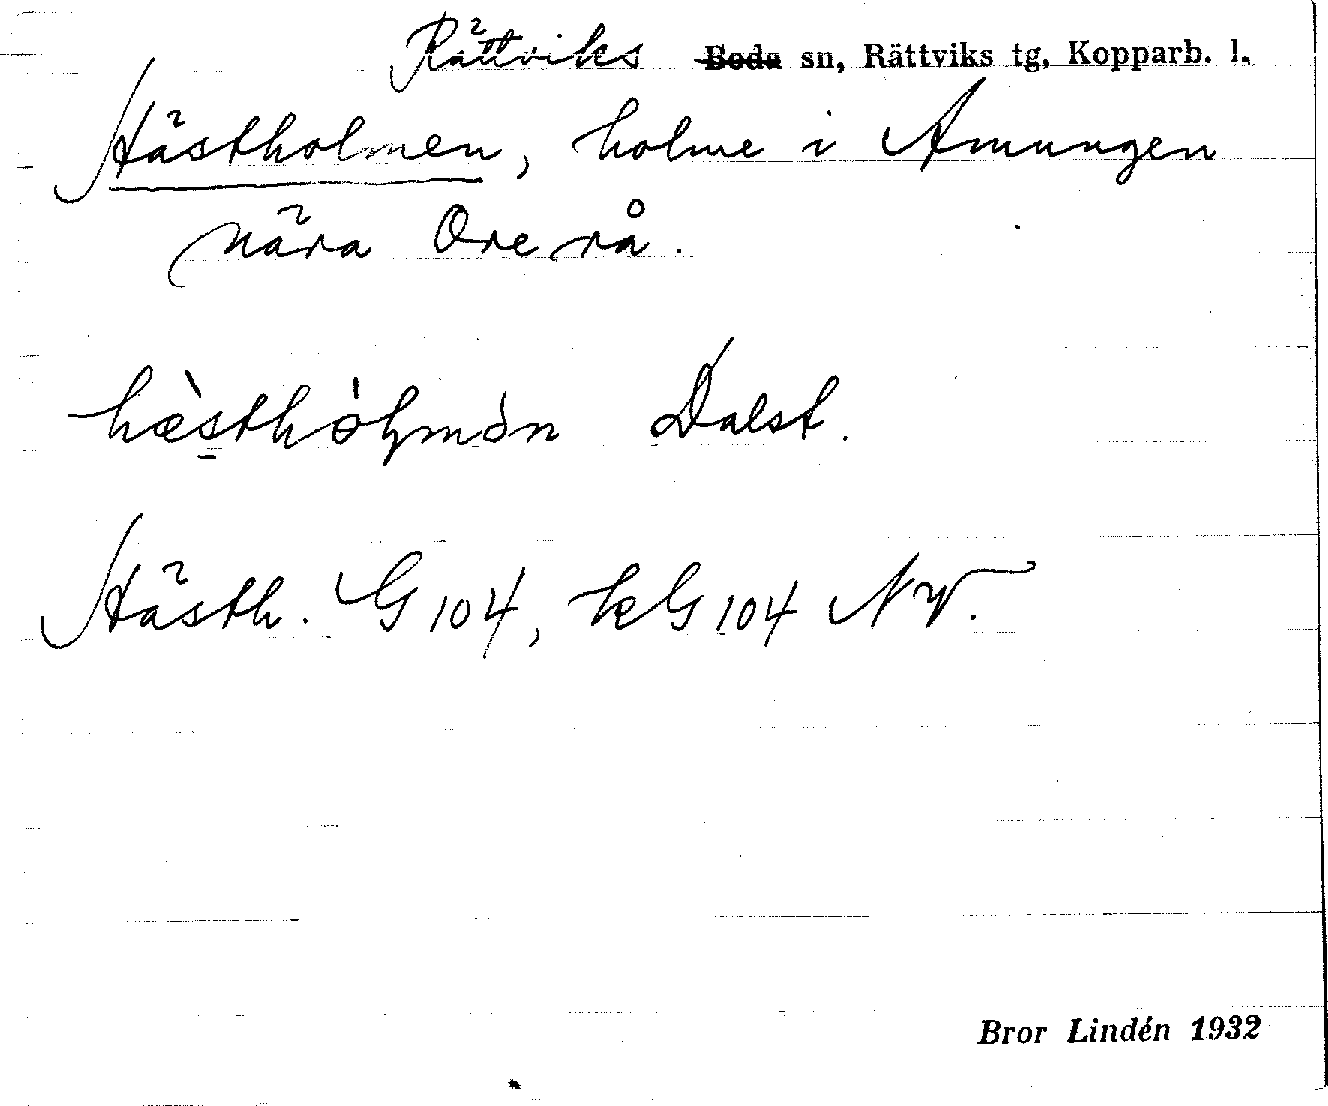 Rättviks Boda sn, Rättviks tg, Kopparb. l.
Hästholmen, holme i Amungen
nära Ore rå.
Dalst.
Hästh. G 104, kG 104 NV.
Bror Lindén 1932